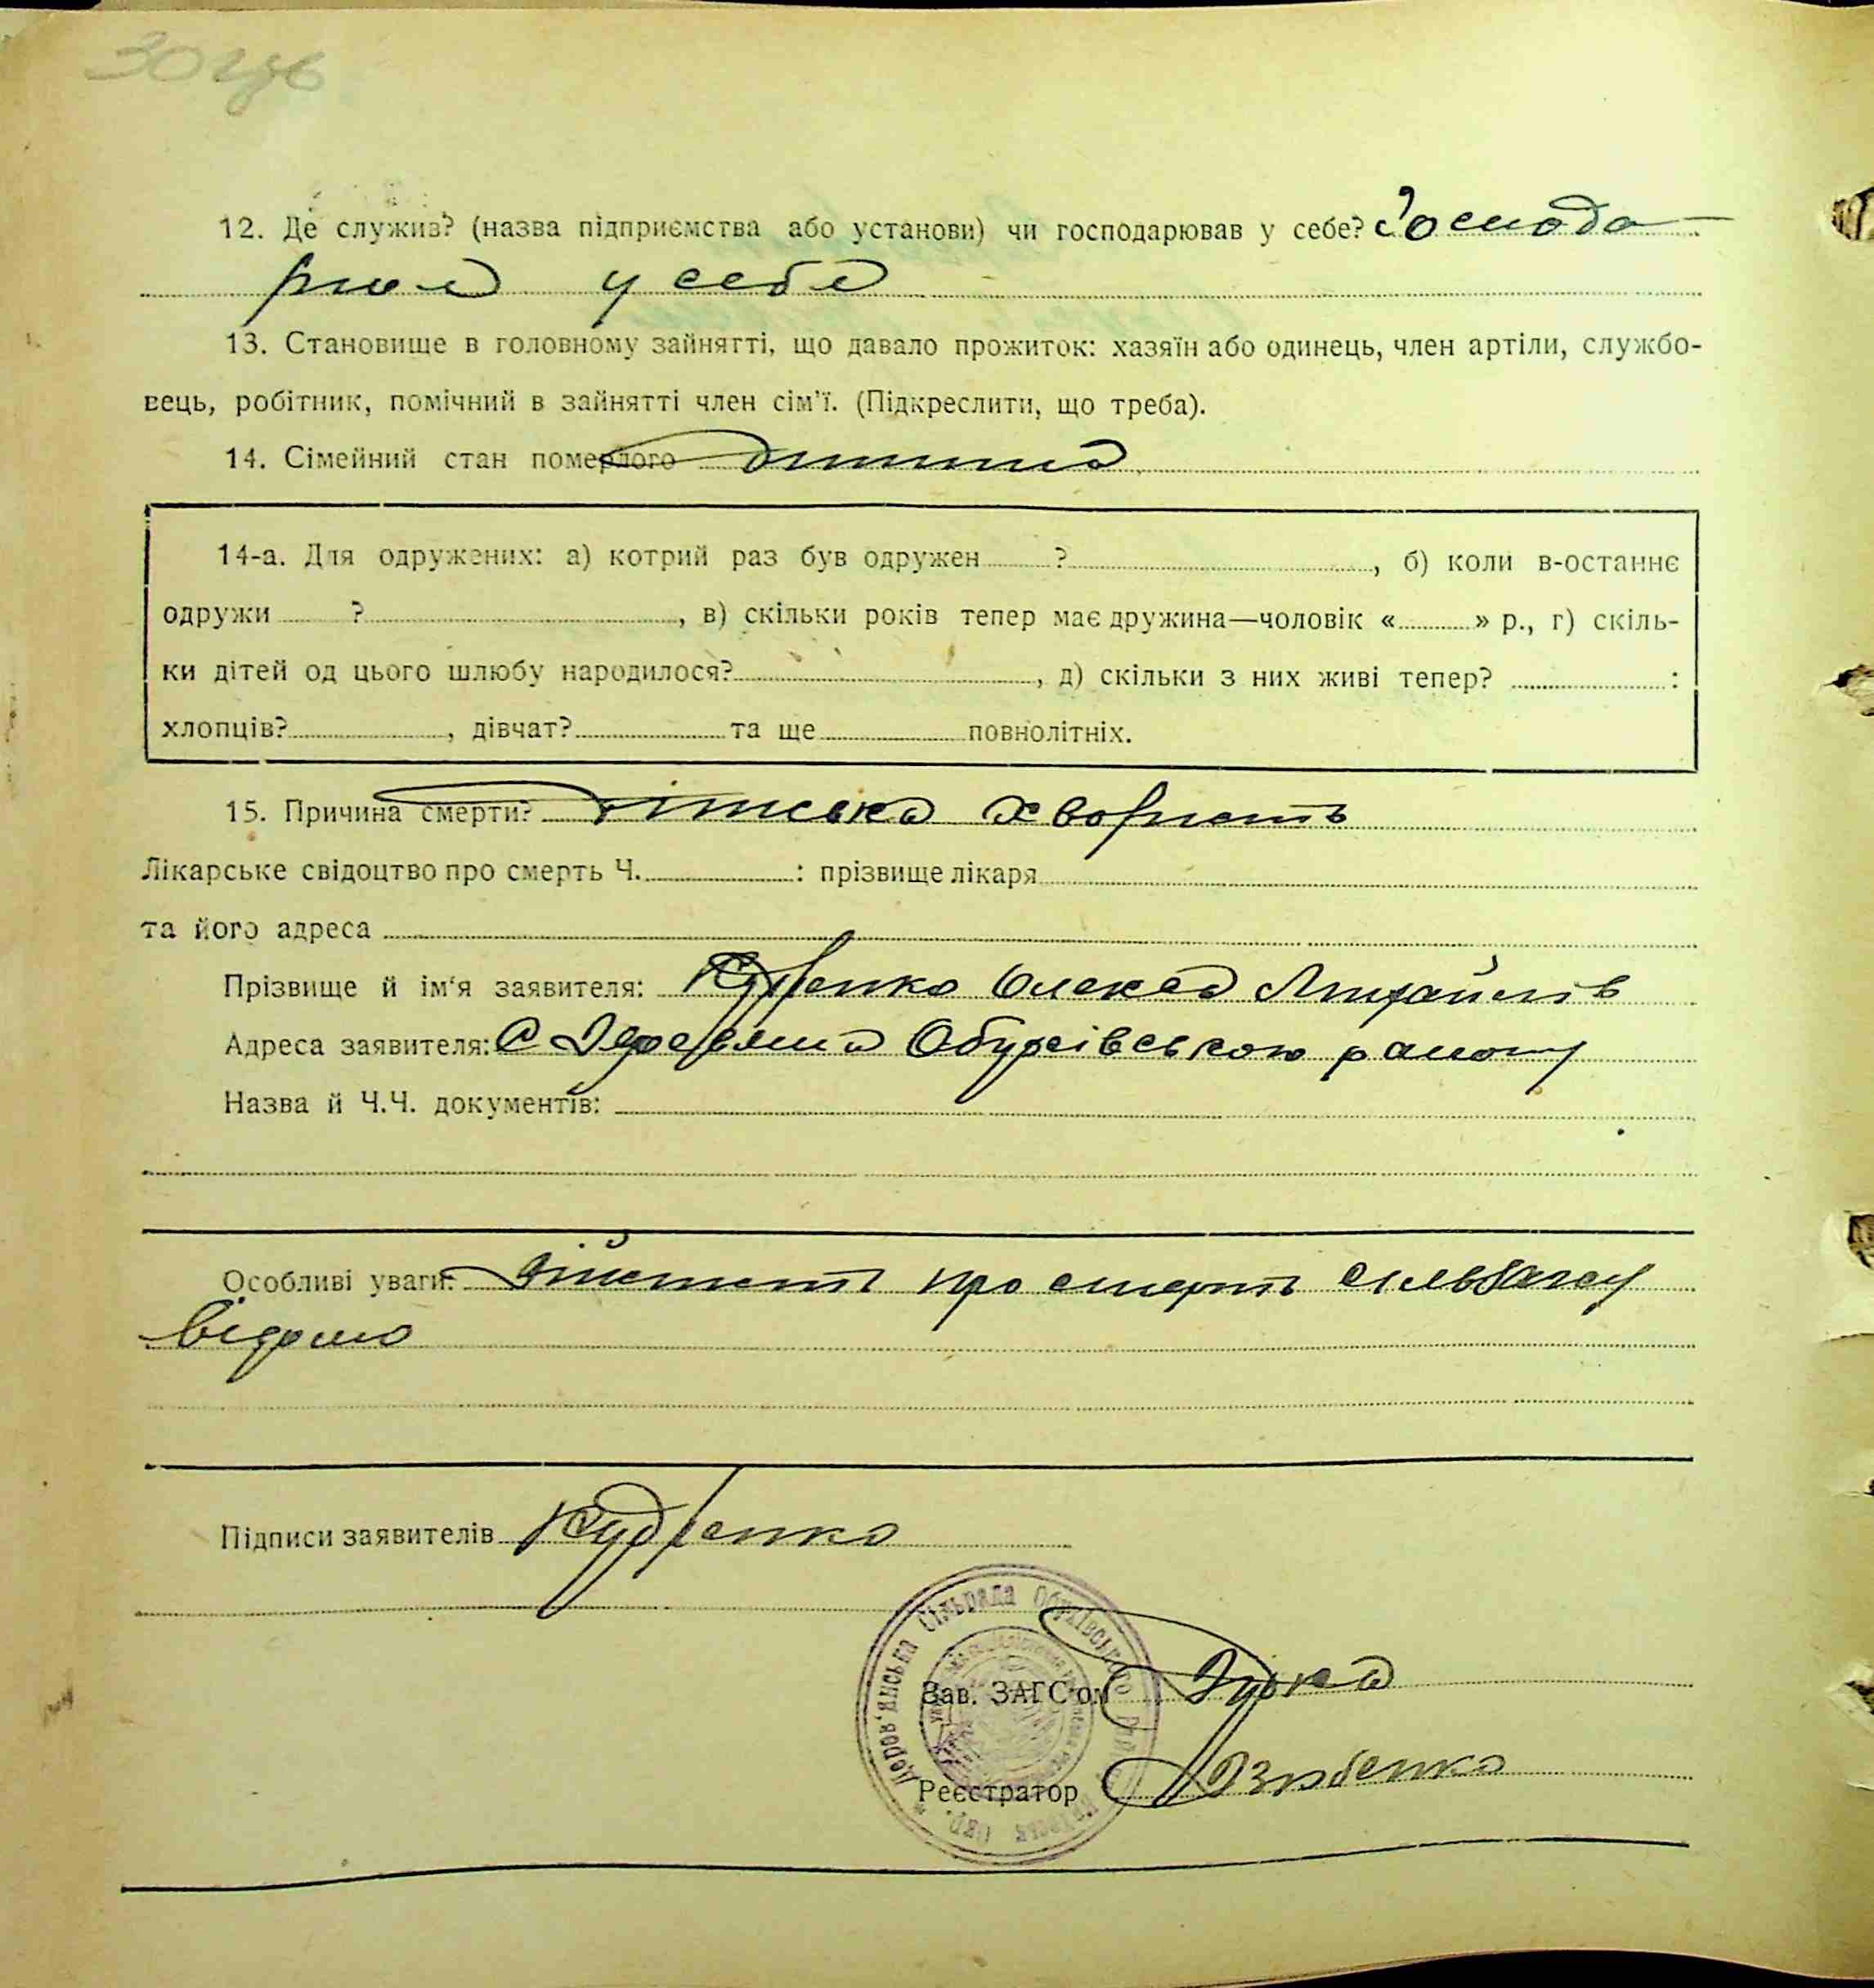 12. Де служив? (назва підприємства або установи) чи господарював у себе? Господа-
рює у себе
13. Становище в головному зайнятті, що давало прожиток: хазяїн або одинець, член артіли, службо-
вець, робітник, помічний в зайнятті член сім'ї. (Підкреслити, що треба).
14. Сімейний стан померлого дитина
14-а. Для одружених: а) котрий раз був одружен ?, б) коли в-останнє
одружи ?, в) скільки років тепер має дружина—чоловік « » р., г) скіль-
ки дітей од цього шлюбу народилося?, д) скільки з них живі тепер? :
хлопців?, дівчат? та ще повнолітніх.
15. Причина смерти? Дітська хворість
Лікарське свідоцтво про смерть Ч. : прізвище лікаря
та його адреса
Прізвище й ім'я заявителя: Кудренко Олекса Михайлів
Адреса заявителя: С Деревяна Обухівського району
Назва й Ч.Ч. документів:
Особливі уваги: Дійсність про смерть сільзагсу
відомо
Підписи заявителів Кудренко
Дерев'янська Сільрада Обухівського
Зав. ЗАГС'ом
Реєстратор